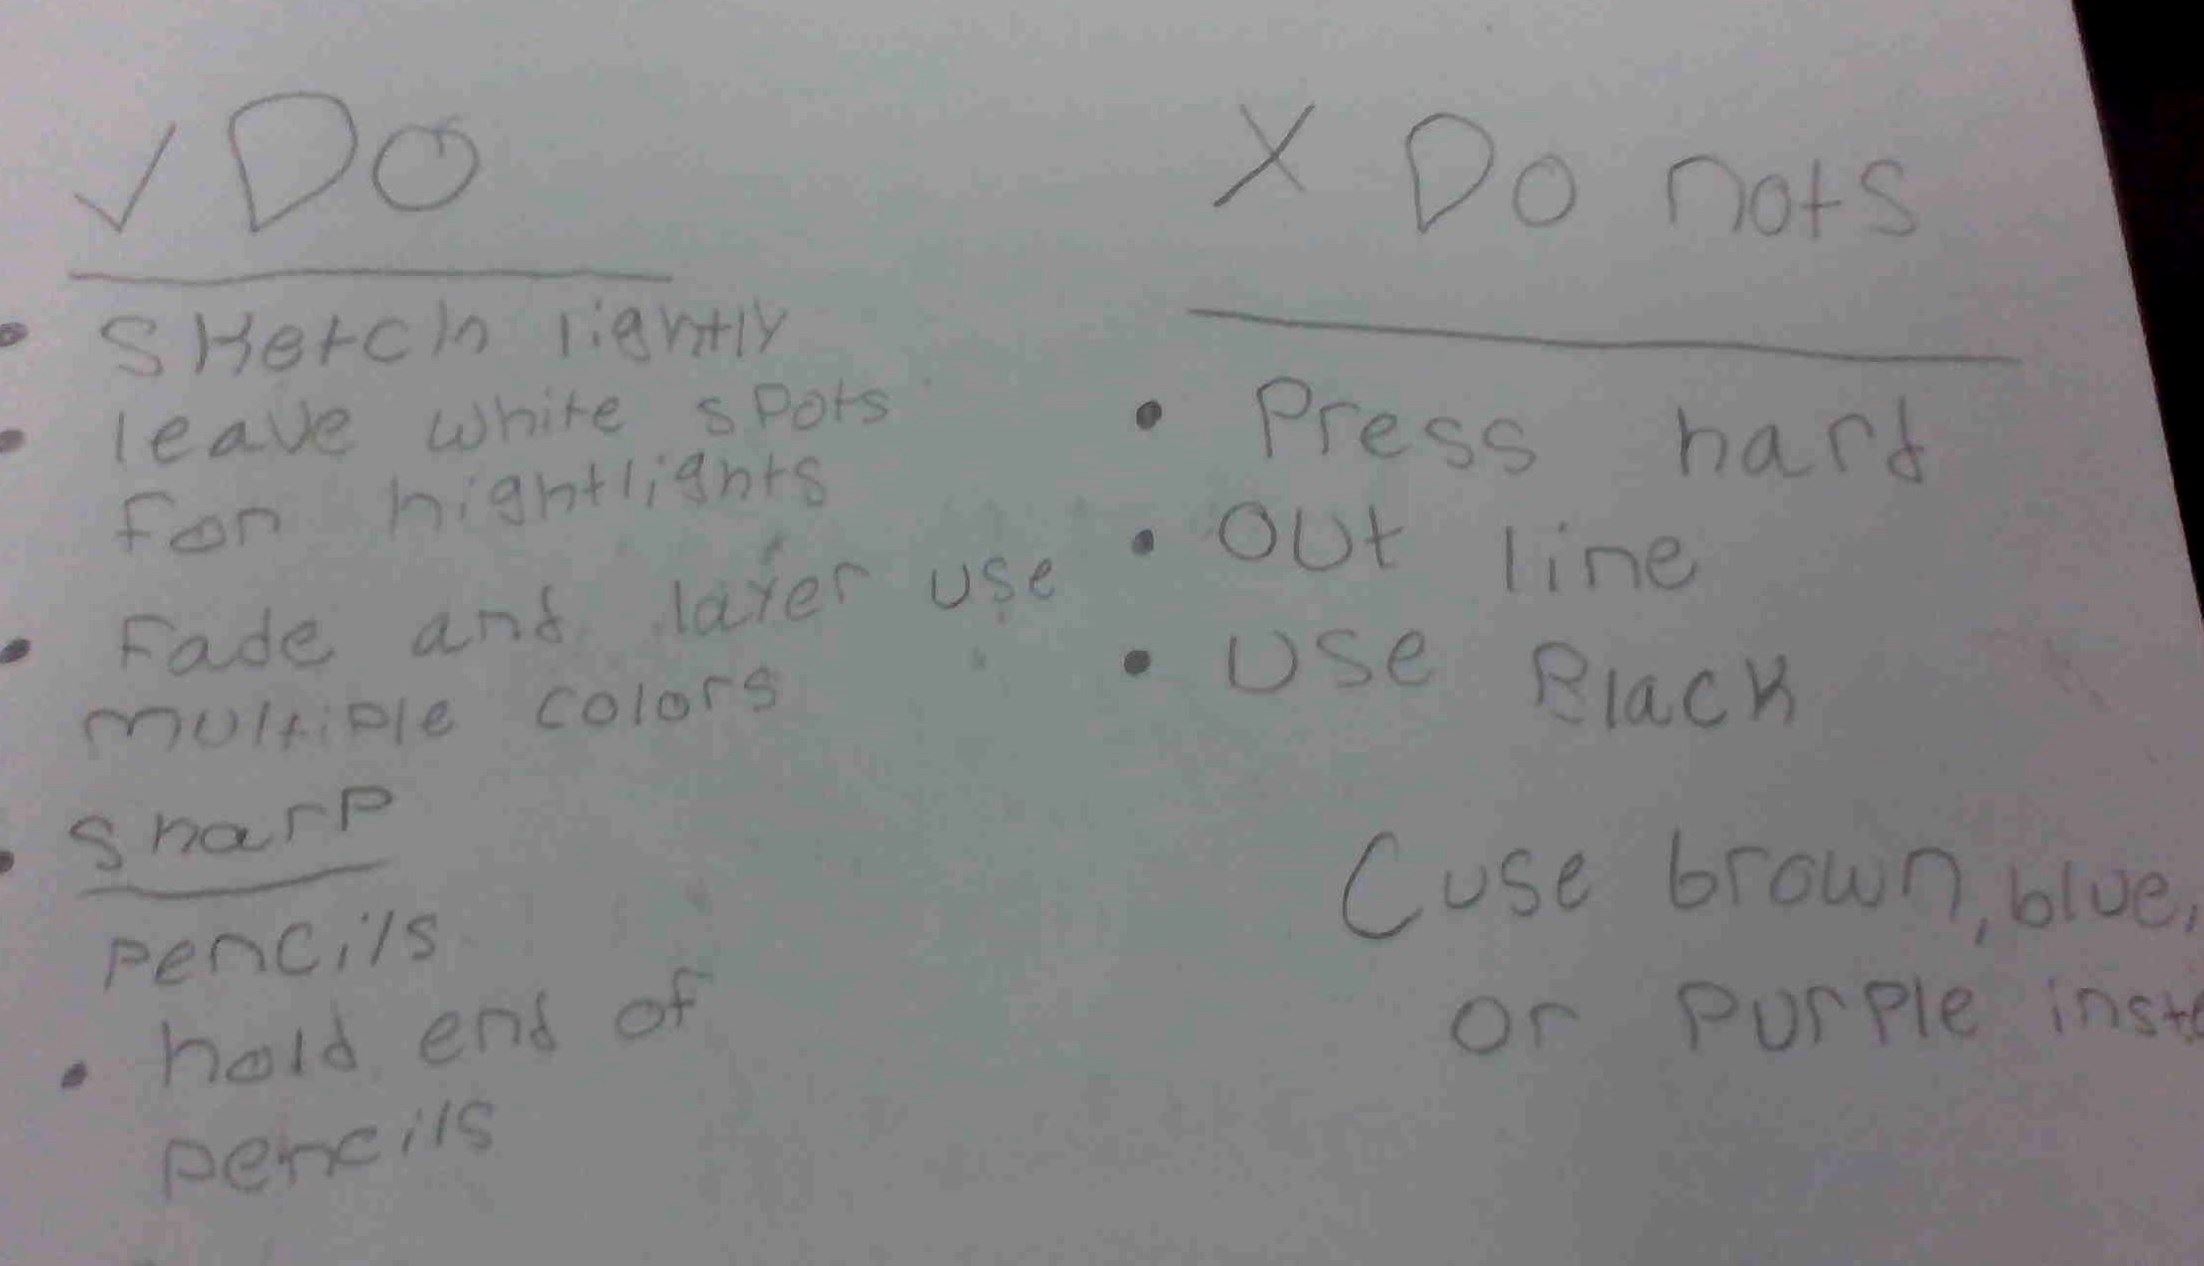 ✓ DO
• Sketch lightly
• leave white spots
for hightlights
• Fade and layer use
multiple colors
• sharp
pencils
• hold end of
pencils
X Do nots
• Press hard
• Out line
• Use Black
(use brown, blue,
or purple inste